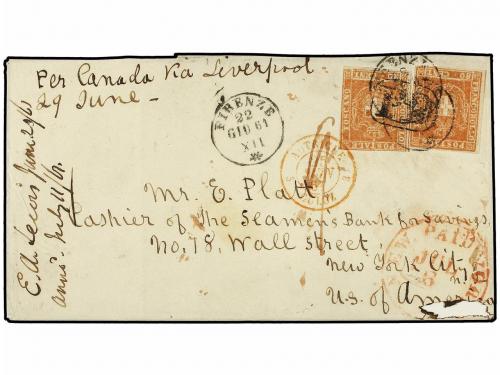 Per Canada via Liverpool.
29 June
FIRENZE
22
GIU 61
XII
Mr. E. Platt
Cashier of the Seamens Bank for Savings
No. 78. Wall Street,
New York City,
N.Y.
U.S. of America
E. A. Lewis June 21/61
Ansd. July 11/61.
PAID